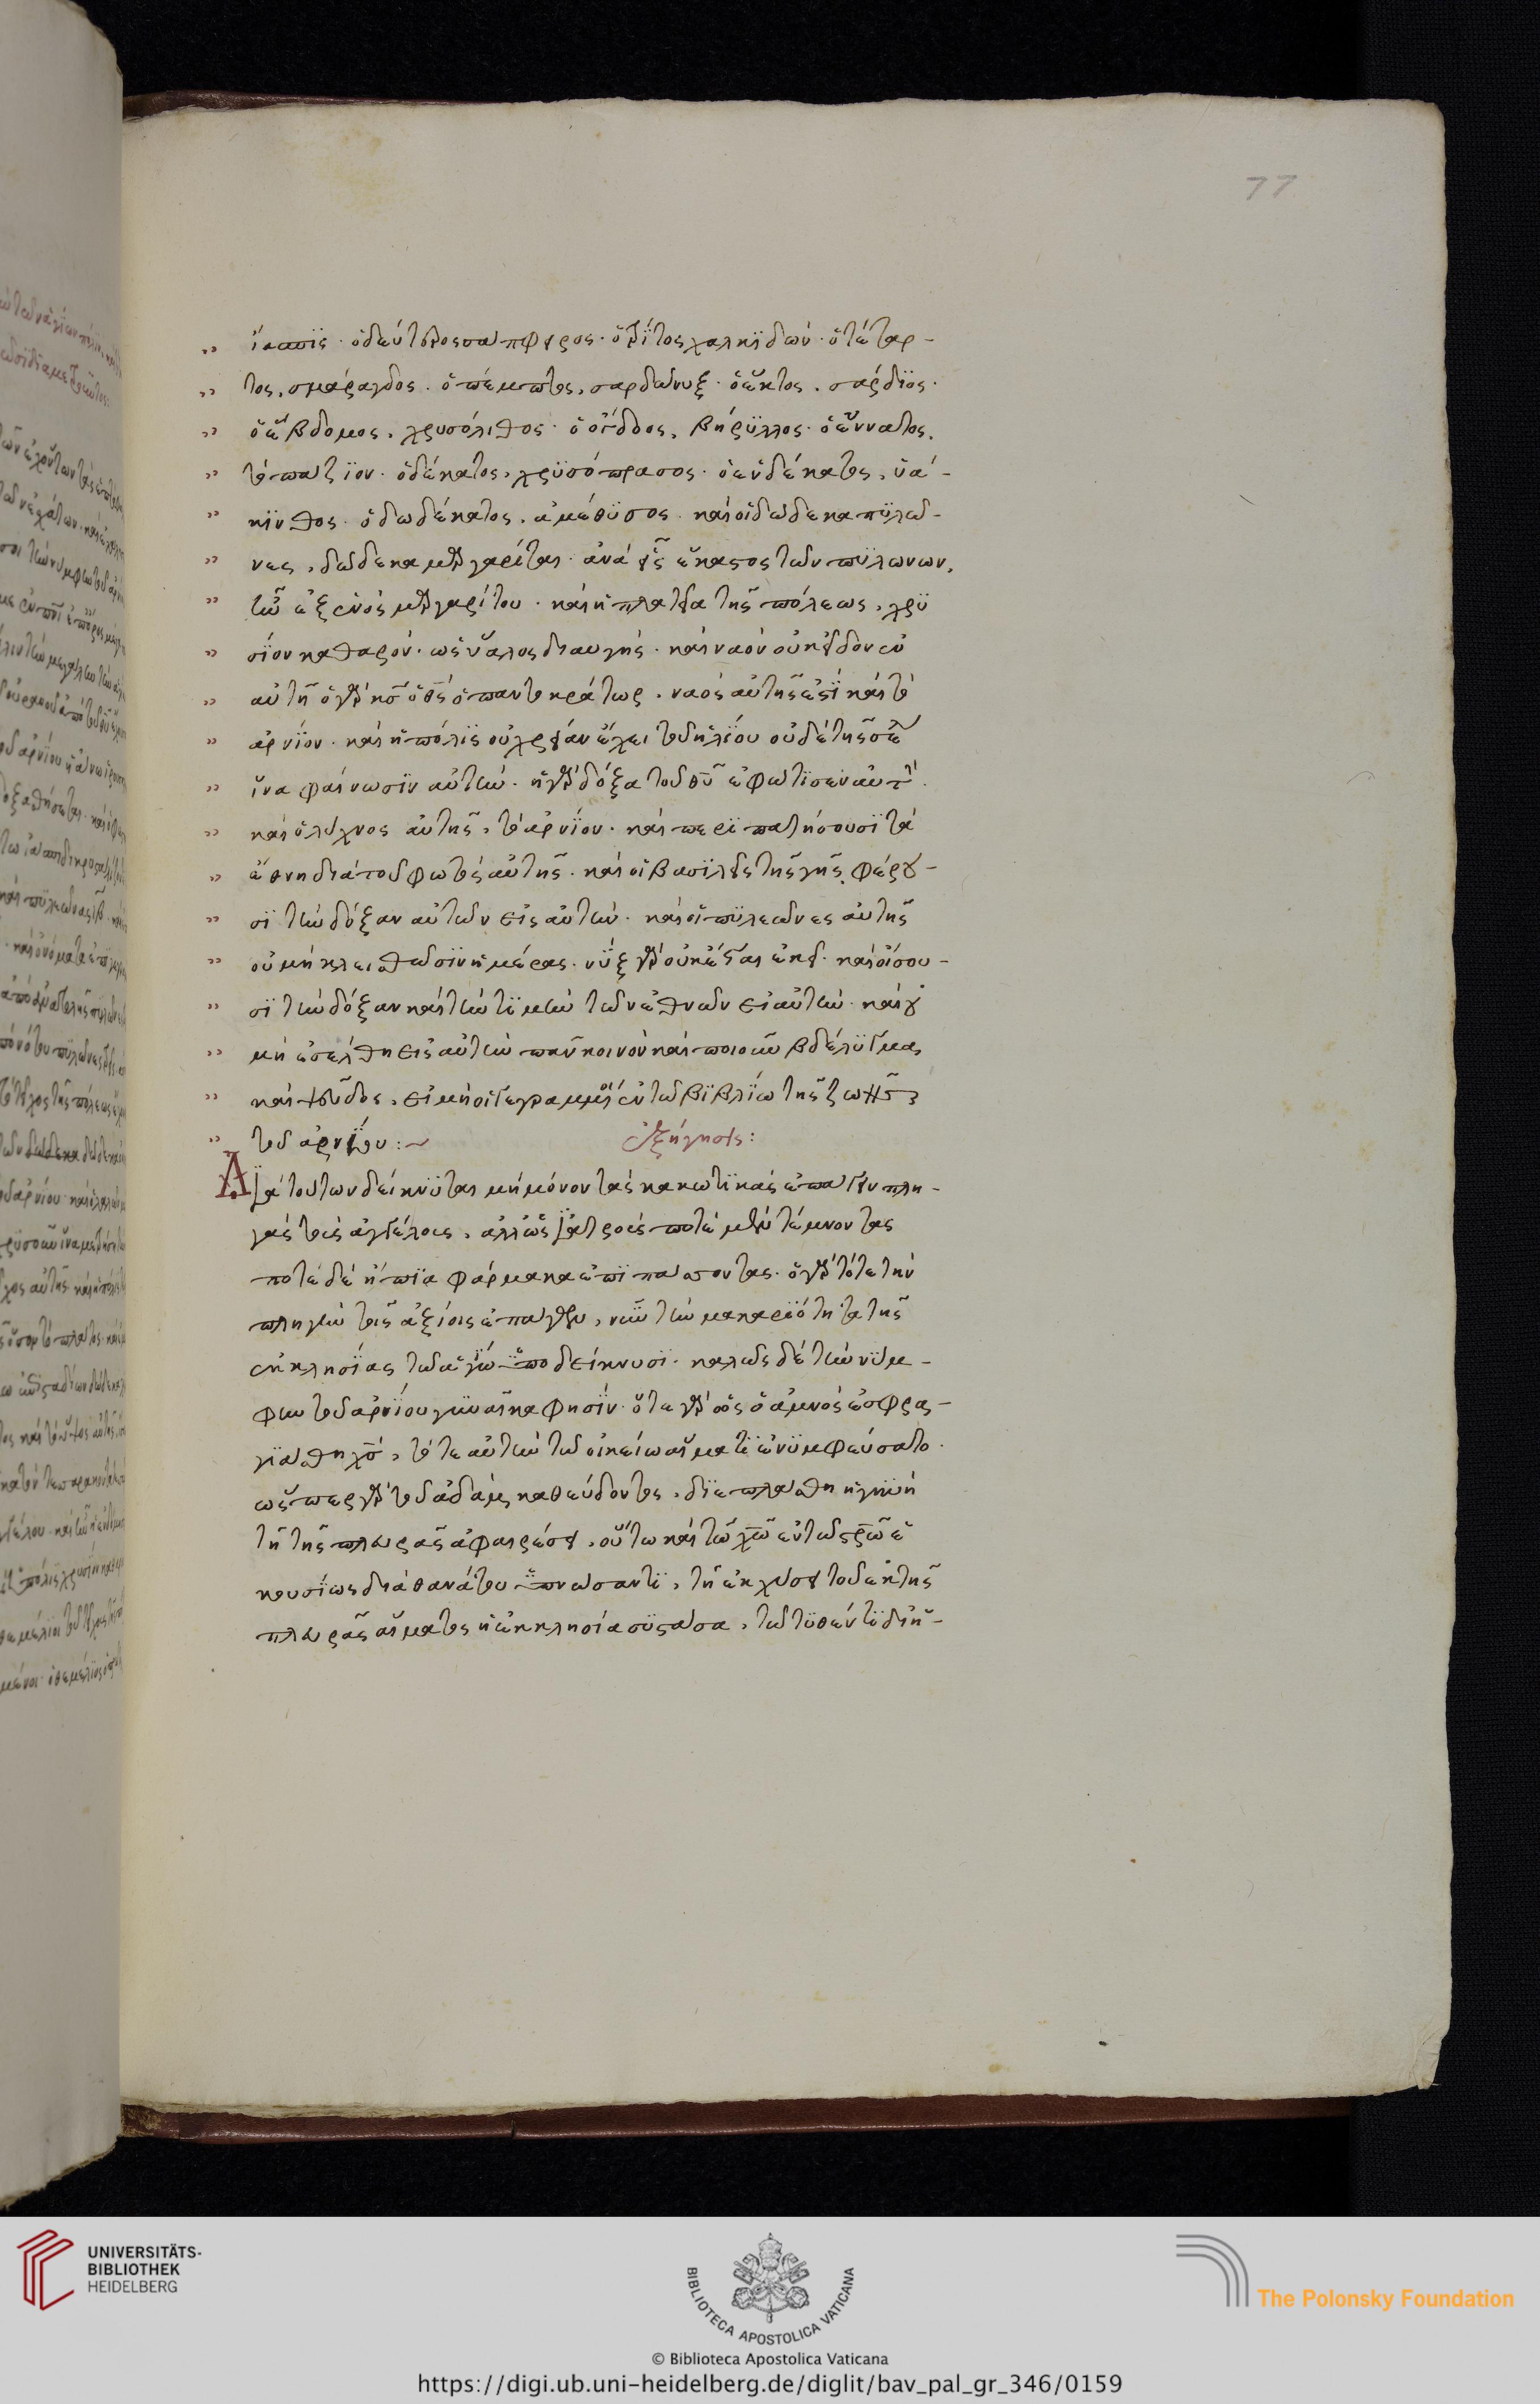 77
ἴασπϊς · ὁ δεύτερος σάπφειρος · ὁ τρίτος χαλκηδών · ὁ τέταρ-
τος, σμάραγδος · ὁ πέμπτος, σαρδώνυξ · ὁ ἕκτος, σάρδϊος ·
ὁ ἕβδομος, χρυσόλιθος · ὁ ὄγδοος, βήρϋλλος · ὁ ἔννατος,
τοπάζϊον · ὁ δέκατος, χρϋσόπρασος · ὁ ἑνδέκατος, ὑά-
κϊνθος · ὁ δωδέκατος, ἀμέθϋσος · καὶ οἱ δώδεκα πϋλῶ-
νες, δώδεκα μαργαρίται · ἀνὰ εἷς ἕκαστος τῶν πϋλώνων,
ἦν ἐξ ἑνὸς μαργαρίτου · καὶ ἡ πλατεῖα τῆς πόλεως, χρϋ
σίον καθαρόν · ὡς ὕαλος διαυγής · καὶ ναὸν οὐκ εἶδον ἐν
αὐτῇ ὁ γὰρ κς ὁ θς ὁ παντοκράτωρ, ναὸς αὐτῆς ἐστὶ καὶ τὸ
ἀρνίον · καὶ ἡ πόλϊς οὐ χρείαν ἔχει τοῦ ἡλίου οὐδὲ τῆς σελ
ἵνα φαίνωσϊν αὐτήν · ἡ γὰρ δόξα τοῦ θυ ἐφώτϊσεν αὐτὴ ·
καὶ ὁ λύχνος αὐτῆς, τὸ ἀρνίον · καὶ περϊπατήσουσϊ τὰ
ἔθνη διὰ τοῦ φωτὸς αὐτῆς · καὶ οἱ βασϊλεῖς τῆς γῆς φέρου-
σϊ τὴν δόξαν αὐτῶν εἰς αὐτήν · καὶ οἱ πϋλεῶνες αὐτῆς
οὐ μὴ κλεισθῶσϊν ἡμέρας · νὺξ γὰρ οὐκ ἔσται ἐκεῖ · καὶ οἴσου-
σϊ τὴν δόξαν καὶ τὴν τϊμὴν τῶν ἐθνῶν εἰς αὐτήν · καὶ οὐ
μὴ εἰσέλθη εἰς αὐτὴν πᾶν κοινὸν καὶ ποιοῦν βδέλϋγμα,
καὶ ψεῦδος, εἰ μὴ οἱ γεγραμμένοι ἐν τῷ βϊβλίῳ τῆς ζωῆς
τοῦ ἀρνίου :~ ἐξήγησϊς :
Διὰ τούτων δείκνϋται μὴ μόνον τὰς κακωτϊκὰς ἐπάγειν πλη-
γὰς τοὺς ἀγγέλους, ἀλλ' ὡς ἰατροὺς ποτὲ μὲν τέμνοντας
ποτὲ δὲ ἤπϊα φάρμακα ἐπϊπάσσοντας · ὁ γὰρ τότε τὴν
πληγὴν τοῖς ἀξίοις ἐπάγων, νῦν τὴν μακαρϊότητα τῆς
ἐκκλησίας τῷ ἁγίῳ ὑποδείκνυσϊ · καλῶς δὲ τὴν νύμ-
φην τοῦ ἀρνίου γυναῖκα φησϊν · ὅτε γὰρ ὡς ὁ ἀμνὸς ἐσφα-
γϊάσθη χς, τότε αὐτὴν τῷ οἰκείῳ αἵματϊ ἐνϋμφεύσατο ·
ὥσπερ γὰρ τοῦ ἀδὰμ καθεύδοντος, δϊεπλάσθη ἡ γυνὴ
τῇ τῆς πλευρᾶς ἀφαιρέσει, οὕτω καὶ τῷ χω ἐν τῷ στρῷ ἑ
κουσίως διὰ θανάτου ὑπνώσαντϊ, τῇ ἐκχύσει τοῦ ἐκ τῆς
πλευρᾶς αἵματος ἡ ἐκκλησία συστᾶσα, τῷ τϋθέντϊ δι' ἡ-
UNIVERSITÄTS-
BIBLIOTHEK
HEIDELBERG
BIBLIOTECA APOSTOLICA VATICANA
The Polonsky Foundation
© Biblioteca Apostolica Vaticana
https://digi.ub.uni-heidelberg.de/diglit/bav_pal_gr_346/0159